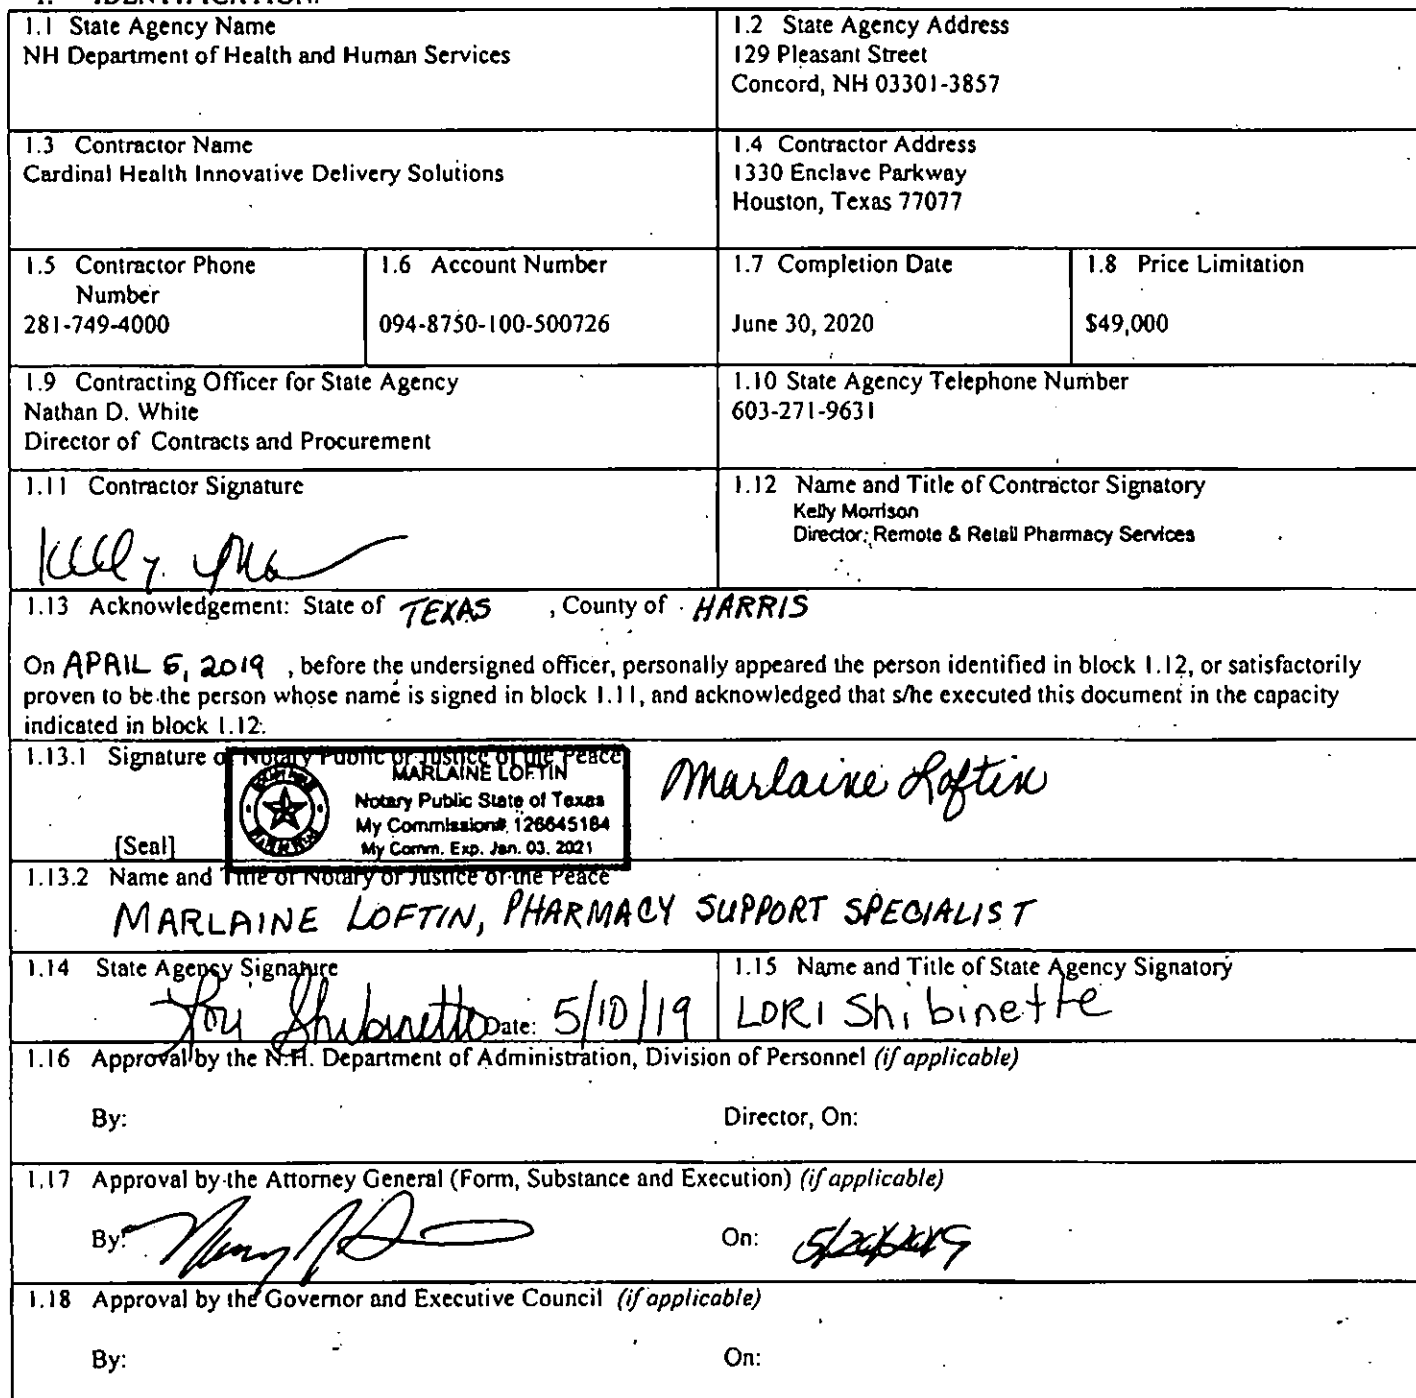 1. IDENTIFICATION.
1.1 State Agency Name
NH Department of Health and Human Services
1.2 State Agency Address
129 Pleasant Street
Concord, NH 03301-3857
1.3 Contractor Name
Cardinal Health Innovative Delivery Solutions
1.4 Contractor Address
1330 Enclave Parkway
Houston, Texas 77077
1.5 Contractor Phone
Number
281-749-4000
1.6 Account Number
094-8750-100-500726
1.7 Completion Date
June 30, 2020
1.8 Price Limitation
$49,000
1.9 Contracting Officer for State Agency
Nathan D. White
Director of Contracts and Procurement
1.10 State Agency Telephone Number
603-271-9631
1.11 Contractor Signature
1.12 Name and Title of Contractor Signatory
Kelly Morrison
Director, Remote & Retail Pharmacy Services
1.13 Acknowledgement: State of TEXAS , County of HARRIS
On APRIL 5, 2019 , before the undersigned officer, personally appeared the person identified in block 1.12, or satisfactorily
proven to be the person whose name is signed in block 1.11, and acknowledged that s/he executed this document in the capacity
indicated in block 1.12.
1.13.1 Signature of Notary Public or Justice of the Peace
MARLAINE LOFTIN
Notary Public State of Texas
My Commission# 126645184
My Comm. Exp. Jan. 03, 2021
Marlaine Loftin
[Seal]
1.13.2 Name and Title of Notary or Justice of the Peace
MARLAINE LOFTIN, PHARMACY SUPPORT SPECIALIST
1.14 State Agency Signature
Lori Shibinette Date: 5/10/19
1.15 Name and Title of State Agency Signatory
LORI Shibinette
1.16 Approval by the N.H. Department of Administration, Division of Personnel (if applicable)
By:
Director, On:
1.17 Approval by the Attorney General (Form, Substance and Execution) (if applicable)
By:
On:
1.18 Approval by the Governor and Executive Council (if applicable)
By:
On: